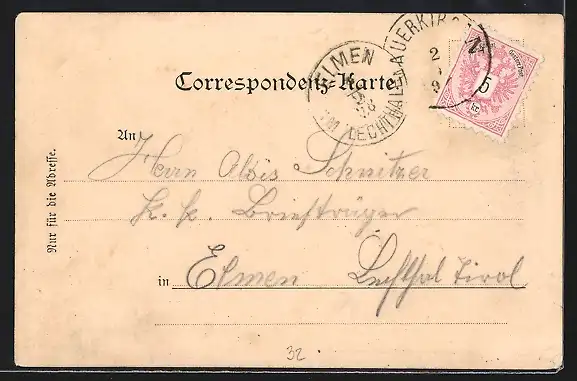 Correspondenz-Karte.
ELMEN
IM LECHTHALE
MAUERKIRCHEN
5
kr
An
Herrn Alois Schnitzer
k. k. Briefträger
in Elmen Lechthal Tirol
Nur für die Adresse.
32